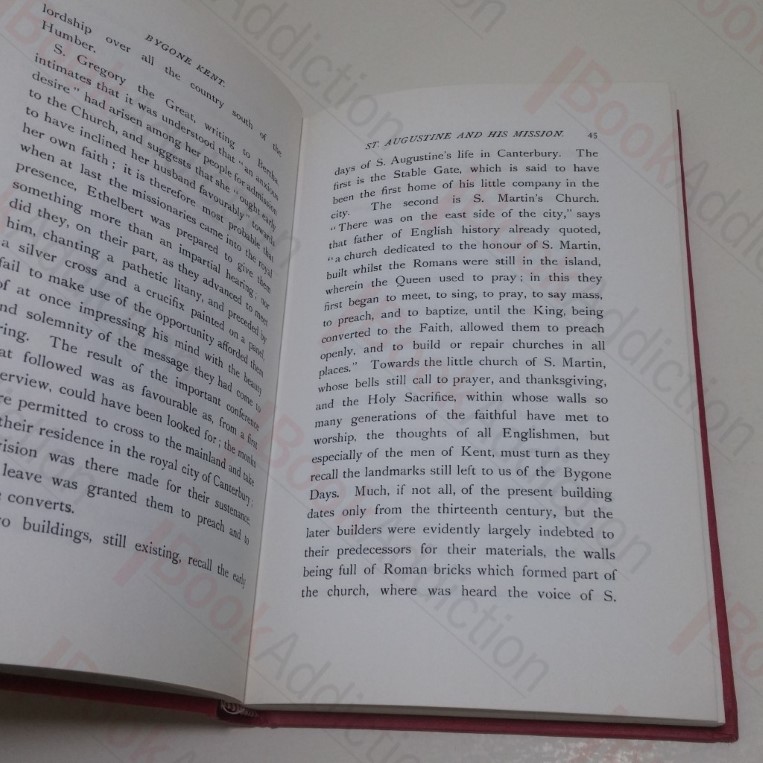 BYGONE KENT.
lordship over all the country south of the
Humber.
S. Gregory the Great, writing to Bertha,
intimates that it was understood that "an anxious
desire" had arisen among her people for admission
to the Church, and suggests that she "ought early
to have inclined her husband favourably" towards
her own faith; it is therefore most probable that
when at last the missionaries came into the royal
presence, Ethelbert was prepared to give them
something more than an impartial hearing; nor
did they, on their part, as they advanced to meet
him, chanting a pathetic litany, and preceded by
a silver cross and a crucifix painted on a panel
fail to make use of the opportunity afforded them
of at once impressing his mind with the beauty
and solemnity of the message they had come to
ring. The result of the important conference
at followed was as favourable as, from a first
erview, could have been looked for; the monks
re permitted to cross to the mainland and take
their residence in the royal city of Canterbury.
vision was there made for their sustenance.
leave was granted them to preach and to
converts.
o buildings, still existing, recall the early
ST. AUGUSTINE AND HIS MISSION. 45
days of S. Augustine's life in Canterbury. The
first is the Stable Gate, which is said to have
been the first home of his little company in the
city. The second is S. Martin's Church.
"There was on the east side of the city," says
that father of English history already quoted,
"a church dedicated to the honour of S. Martin,
built whilst the Romans were still in the island,
wherein the Queen used to pray; in this they
first began to meet, to sing, to pray, to say mass,
to preach, and to baptize, until the King, being
converted to the Faith, allowed them to preach
openly, and to build or repair churches in all
places." Towards the little church of S. Martin,
whose bells still call to prayer, and thanksgiving,
and the Holy Sacrifice, within whose walls so
many generations of the faithful have met to
worship, the thoughts of all Englishmen, but
especially of the men of Kent, must turn as they
recall the landmarks still left to us of the Bygone
Days. Much, if not all, of the present building
dates only from the thirteenth century, but the
later builders were evidently largely indebted to
their predecessors for their materials, the walls
being full of Roman bricks which formed part of
the church, where was heard the voice of S.
BookAddiction